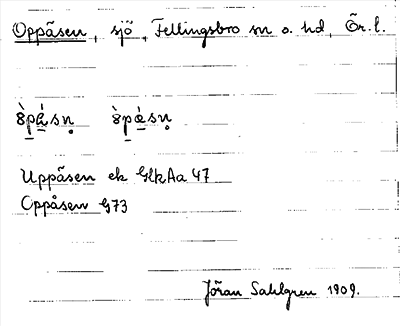 Oppåsen, sjö, Fellingsbro sn o. hd, Ör. l.
Uppåsen ek GlkAa 47
Oppåsen G73
Jöran Sahlgren 1909.